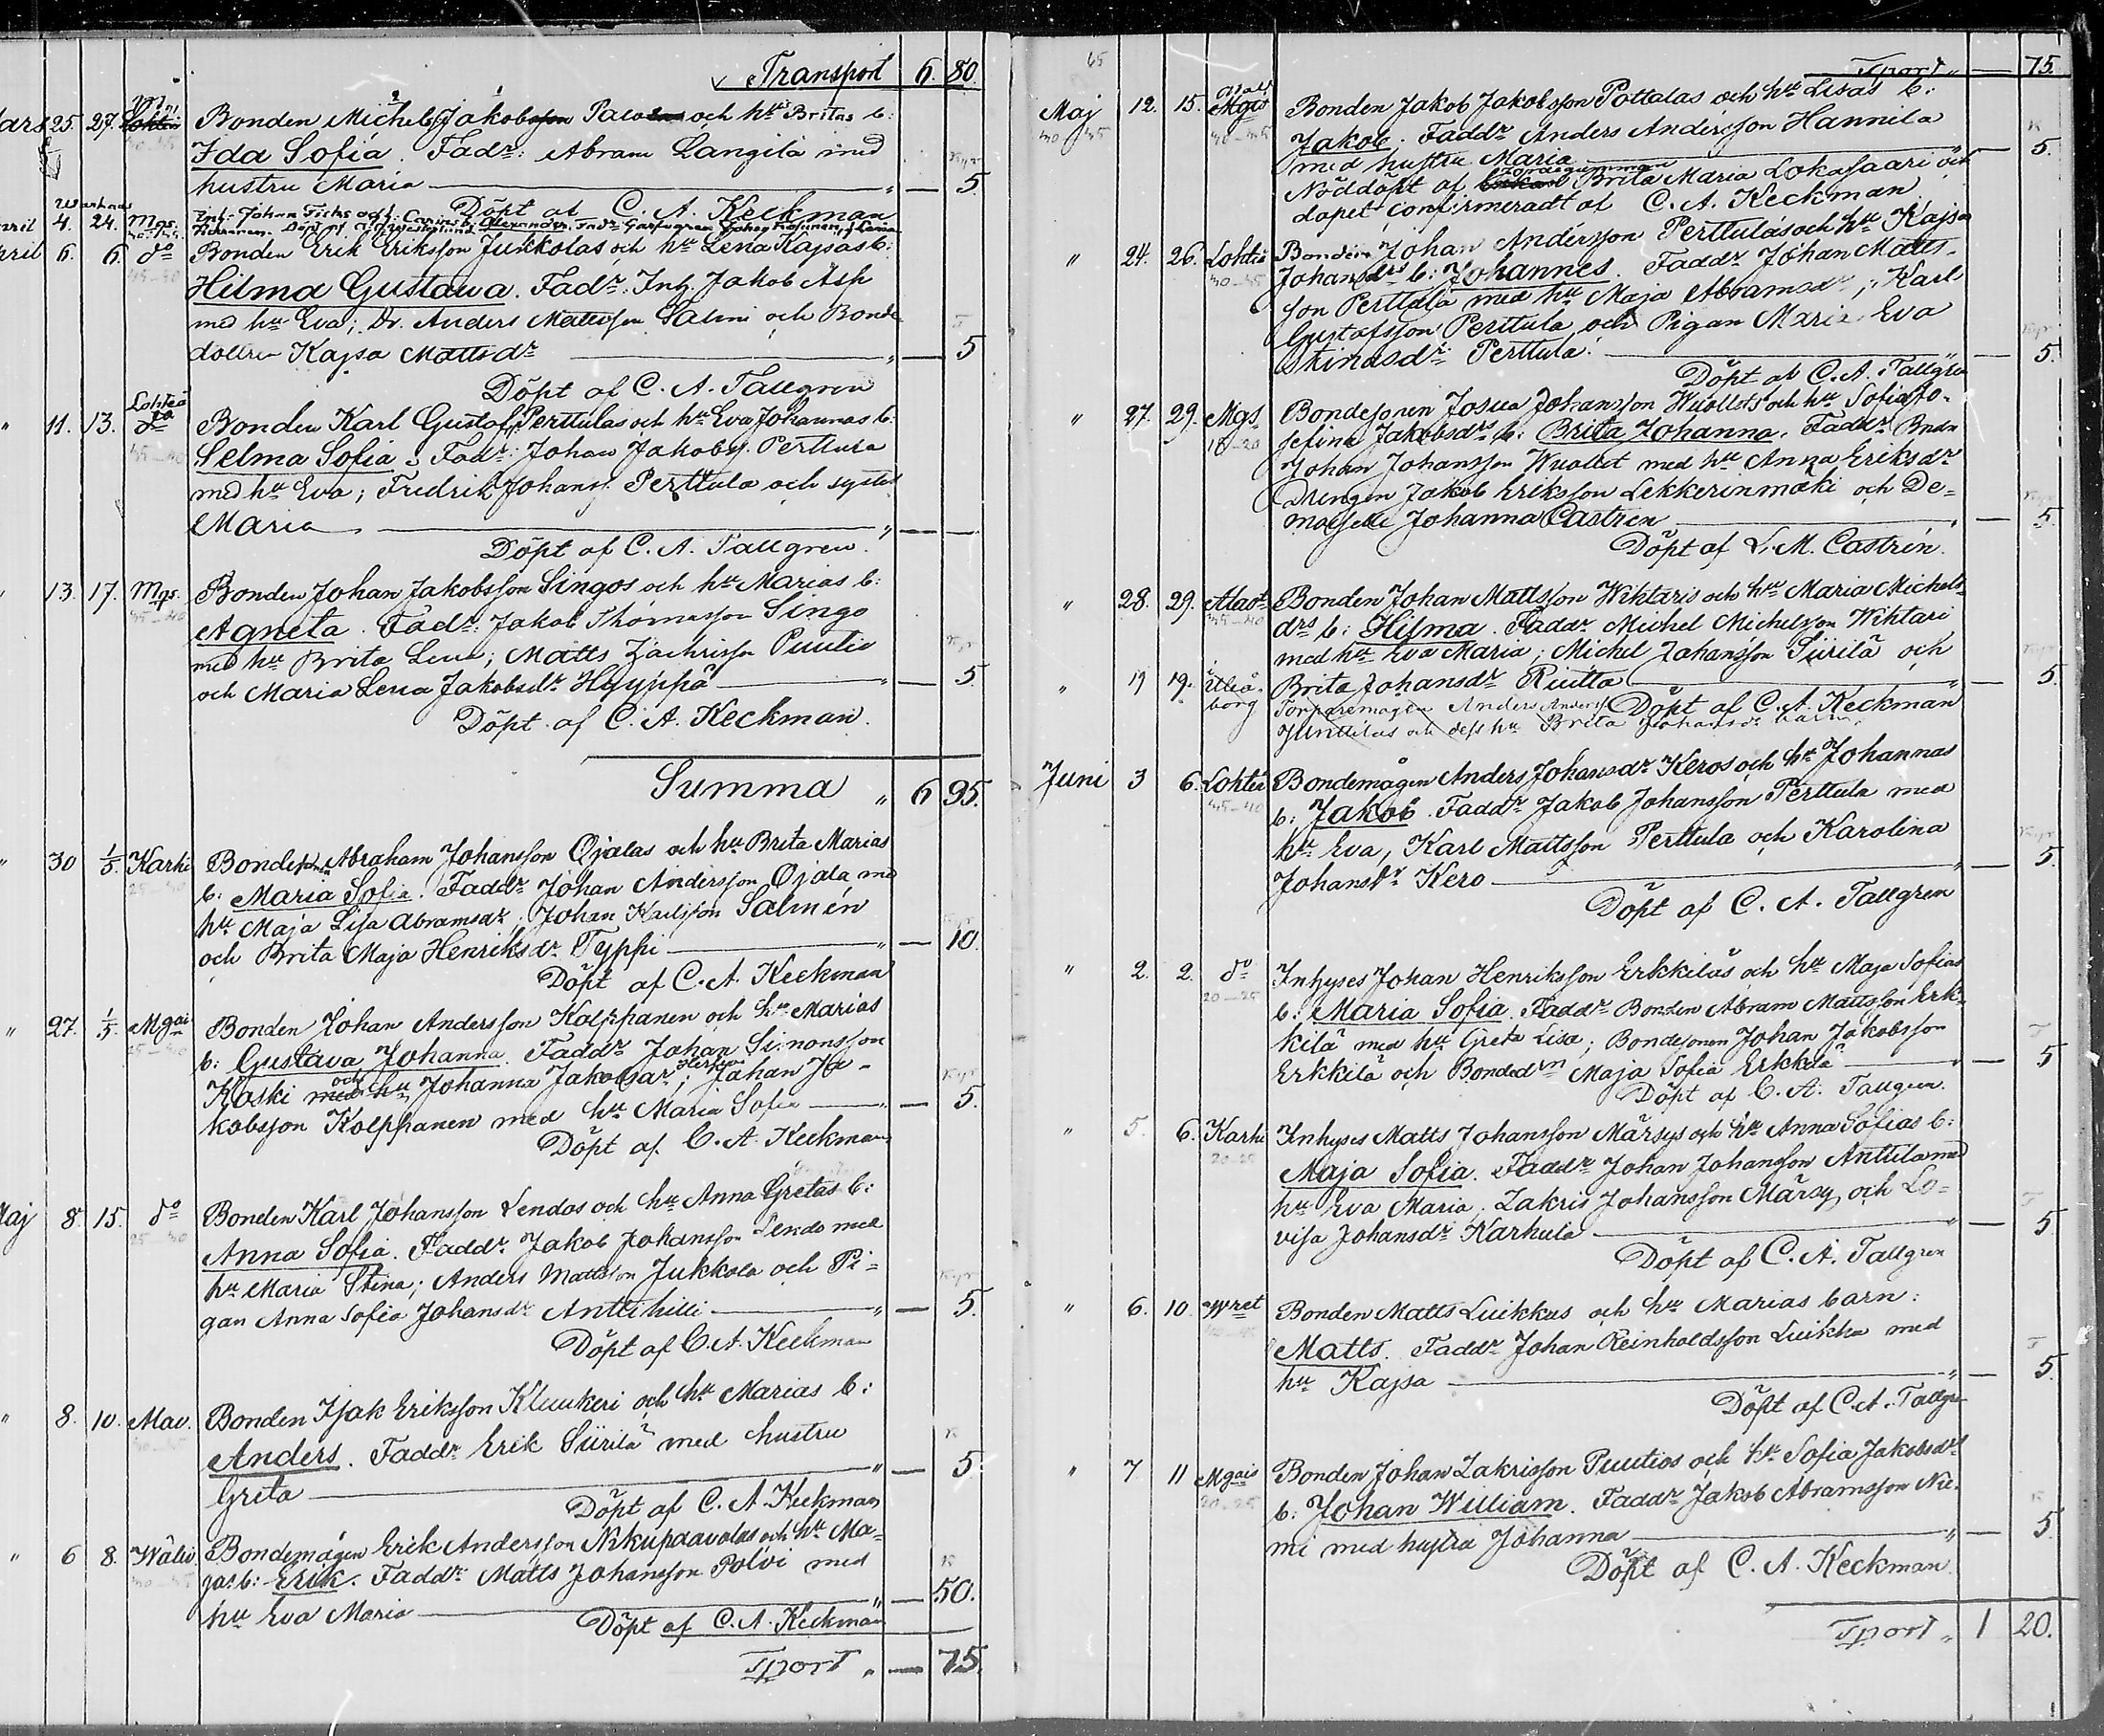 Transport 6. 80.
25. 27. Bonden Michel Jakobsson och hrs Britas b:
Ida Sofia. Fadr: Abram Langila med
hustru Maria — " — 5.
Döpt af C. A. Keckman
4. 24. Mgs. Inh. Johan Alexander. Fadr
April 6. 6. do Bonden Erik Eriksson Jukkolas och hu Lena Kajsas b:
Hilma Gustava. Fadr. Inh. Jakob Asp
med hu Eva; Dr. Anders Mattsson Salmi och Bonde
dottren Kajsa Mattsdr — " — 5
Döpt af C. A. Tallgren
Lohteå
" 11. 13. Bonden Karl Gustafs Perttulas och hu Eva Johannas b:
Selma Sofia. Fadr: Johan Jakobs. Perttula
med hu Eva; Fredrik Johans. Perttula och syster
Maria — " —
Döpt af C. A. Tallgren.
" 13. 17. Mgs. Bonden Johan Jakobsson Singos och hu Marias b:
Agneta. Fadr: Jakob Thomasson Singo
med hu Brita Lena; Matts Zachrisson Puutio
och Maria Lena Jakobsdr Hyyppä — " — 5.
Döpt af C. A. Keckman.
Summa " 6 95.
" 30 1/5. Karhi Bondesonen Abraham Johansson Ojalas och hu Brita Marias
b: Maria Sofia. Faddr Johan Andersson Ojala med
hu Maja Lisa Abramsdr; Johan Karlsson Salmén
och Brita Maja Henriksdr Typpi — " — 10.
Döpt af C. A. Keckman
" 27. 1/5. Mgais Bonden Johan Andersson Kolppanen och hu Marias
b: Gustava Johanna. Faddr Johan Simonsson
Koski och Johanna Jakobsdr; Johan Ja-
kobsson Kolppanen med hu Maria Sofia — " — 5.
Döpt af C. A. Keckman
Maj 8. 15. do Bonden Karl Johansson Lendos och hu Anna Gretas b:
Anna Sofia. Faddr Jakob Johansson Lendo med
hu Maria Stina; Anders Mattsson Jukkola och Pi-
gan Anna Sofia Johansdr Anttihilli — " — 5.
Döpt af C. A. Keckman
" 8. 10. Mav. Bonden Isak Eriksson Kluukeri och hu Marias b:
Anders. Faddr Erik Siirilä med hustru
Greta — " — 5.
Döpt af C. A. Keckman
" 6 8. Wäliv. Bondemågen Erik Andersson Niskupaavolas och hu Ma-
jas b: Erik. Faddr Matts Johansson Polvi med
hu Eva Maria — " — 50.
Döpt af C. A. Keckman
Tport " — 75.
65
Tport " — 75.
Maj 12. 15. Bonden Jakob Jakobsson Pottalas och hu Lisas b:
Jakob. Faddr Anders Andersson Hannila
med hustru Maria — " — 5.
Nöddöpt af Brita Maria Lokasaari och
dopet confirmeradt af C. A. Keckman
" 24. 26. Lohteå Bonden Johan Andersson Perttulas och hu Kajsa
Johansdrs b: Johannes. Faddr Johan Matts-
son Perttula med hu Maja Abramsdr; Karl
Gustafsson Perttula och Pigan Maria Eva
Stinasdr Perttula. — " — 5.
Döpt af C. A. Tallgren
" 27. 29. Mgs. Bondesonen Josua Johansson Wuollets och hu Sofia Jo-
sefina Jakobsdrs b: Brita Johanna. Faddr Bndn
Johan Johansson Wuollet med hu Anna Eriksdr
Drengen Jakob Eriksson Lekkerinmäki och De-
moiselle Johanna Castren — 5.
Döpt af L. M. Castrén.
" 28. 29. Alav. Bonden Johan Mattsson Wihtaris och hu Maria Michels-
drs b: Hilma. Faddr Michel Michelsson Wihtari
med hu Eva Maria; Michel Johansson Siirilä och
Brita Johansdr Ruitta — " — 5.
Döpt af C. A. Keckman
" 19 19. Uleåborg Torparemågen Anders Anders
Junttilas och dess hu Brita Johansdr barn.
Juni 3 6. Lohteå Bondemågen Anders Johansdr Keros och hu Johannas
b: Jakob. Faddr Jakob Johansson Perttula med
hu Eva, Karl Mattsson Perttula och Karolina
Johansdr Kero — " — 5.
Döpt af C. A. Tallgren
" 2. 2. do Inhyses Johan Henriksson Erkkiläs och hu Maja Sofias
b: Maria Sofia. Faddr Bonden Abram Mattsson Erk-
kilä med hu Greta Lisa; Bondesonen Johan Jakobsson
Erkkilä och Bondedrn Maja Sofia Erkkilä — " — 5
Döpt af C. A. Tallgren.
" 5. 6. Karhi Inhyses Matts Johansson Märsys och hu Anna Sofias b:
Maja Sofia. Faddr Johan Johansson Anttila med
hu Eva Maria; Zakris Johansson Märsy och Lo-
visa Johansdr Karhula — " — 5
Döpt af C. A. Tallgren
" 6. 10. Wret Bonden Matts Luikkus och hu Marias barn:
Matts. Faddr Johan Reinholdsson Luikku med
hu Kajsa — " — 5.
Döpt af C. A. Tallgre
" 7 11 Mgais Bonden Johan Zakrisson Puutios och hu Sofia Jakobsdrs
b: Johan William. Faddr Jakob Abramsson Nie-
mi med hustru Johanna — " — 5.
Döpt af C. A. Keckman.
Tport " 1 20.